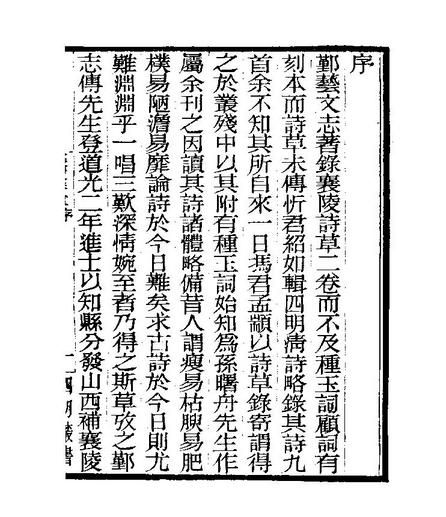 序
鄞藝文志著錄襄陵詩草二卷而不及種玉詞顧詞有
刻本而詩草未傳忻君紹如輯四明清詩略錄其詩九
首余不知其所自來一日馮君孟顓以詩草錄寄謂得
之於叢殘中以其附有種玉詞始知爲孫曙舟先生作
屬余刊之因讀其詩諸體略備昔人謂瘦易枯腴易肥
樸易陋澹易靡論詩於今日難矣求古詩於今日則尤
難淵淵乎一唱三歎深情婉至者乃得之斯草攷之鄞
志傳先生登道光二年進士以知縣分發山西補襄陵
四明叢書